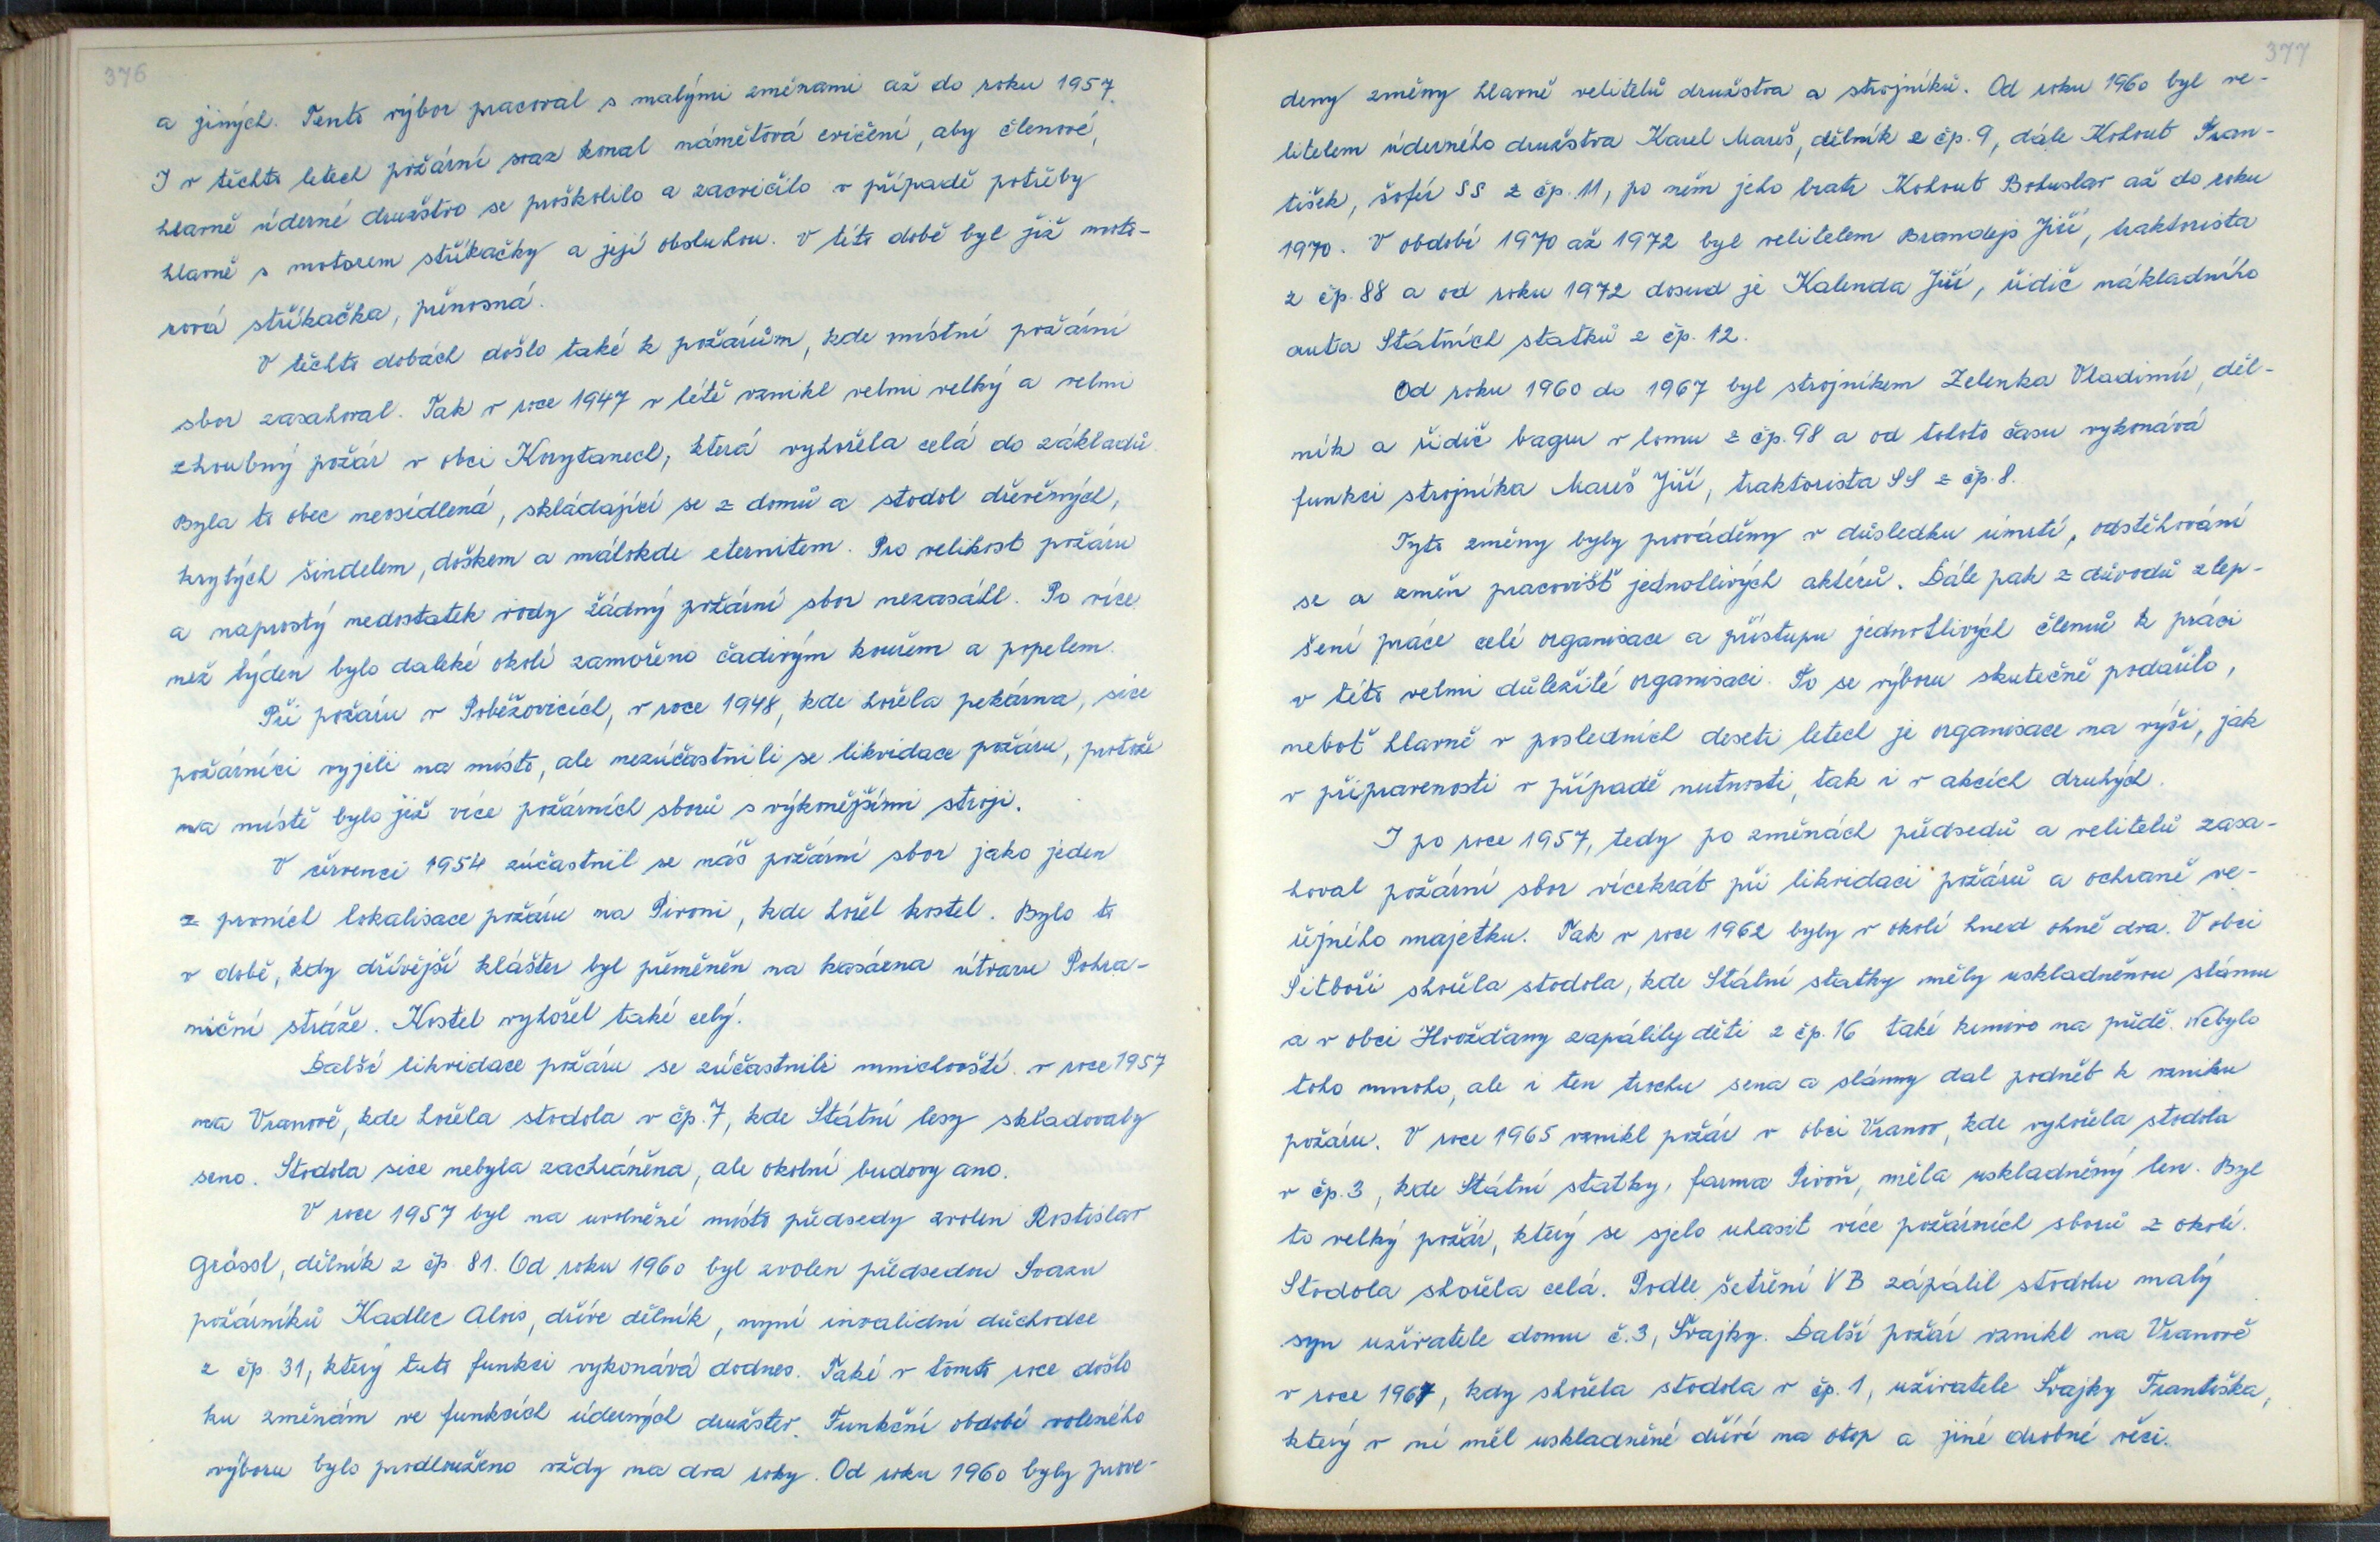 376
a jiných. Tento výbor pracoval s malými změnami až do roku 1957.
I v těchto letech požární svaz konal námětová cvičení, aby členové,
hlavně úderné družstvo se proškolilo a zacvičilo v případě potřeby
hlavně s motorem stříkačky a její obsluhou. V této době byl již moto-
rová stříkačka, přenosná.
V těchto dobách došlo také k požárům, kde místní požární
sbor zasahoval. Tak v roce 1947 v létě vznikl velmi velký a velmi
zhoubný požár v obci Korytanech, která vyhořela celá do základů.
Byla to obec neosídlená, skládající se z domů a stodol dřevěných,
krytých šindelem, doškem a málokde eternitem. Pro velikost požáru
a naprostý nedostatek vody žádný požární sbor nezasáhl. Po více
než týden bylo daleké okolí zamořeno čadivým kouřem a popelem.
Při požáru v Poběžovicích, v roce 1948, kde hořela pekárna, sice
požárníci vyjeli na místo, ale nezúčastnili se likvidace požáru, protože
na místě bylo již více požárních sborů s výkonějšími stroji.
V červenci 1954 zúčastnil se náš požární sbor jako jeden
z prvních lokalisace požáru na Pivoni, kde hořel kostel. Bylo to
v době, kdy dřívější klášter byl přeměněn na kasárna útvaru Pohra-
niční stráže. Kostel vyhořel také celý.
Další likvidace požáru se zúčastnili mnichovští v roce 1957
na Vranově, kde hořela stodola v čp. 7, kde Státní lesy skladovaly
seno. Stodola sice nebyla zachráněna, ale okolní budovy ano.
V roce 1957 byl na uvolněné místo předsedy zvolen Rostislav
Grössl, dělník z čp. 81. Od roku 1960 byl zvolen předsedou Svazu
požárníků Kadlec Alois, dříve dělník, nyní invalidní důchodce
z čp. 31, který tuto funkci vykonává dodnes. Také v tomto roce došlo
ku změnám ve funkcích úderných družstev. Funkční období voleného
výboru bylo prodlouženo vždy na dva roky. Od roku 1960 byly prove-
377
deny změny hlavně velitelů družstva a strojníků. Od roku 1960 byl ve-
litelem úderného družstva Karel Mareš, dělník z čp. 9, dále Kohout Fran-
tišek, šofér SS z čp. 11, po něm jeho bratr Kohout Bohuslav až do roku
1970. V období 1970 až 1972 byl velitelem Brandejs Jiří, traktorista
z čp. 88 a od roku 1972 dosud je Kalenda Jiří, řidič nákladního
auta Státních statků z čp. 12.
Od roku 1960 do 1967 byl strojníkem Zelenka Vladimír, děl-
ník a řidič bagru v lomu z čp. 98 a od tohoto času vykonává
funkci strojníka Mareš Jiří, traktorista SS z čp. 8.
Tyto změny byly prováděny v důsledku úmrtí, odstěhování
se a změn pracovišť jednotlivých aktérů. Dále pak z důvodů zlep-
šení práce celé organisace a přístupu jednotlivých členů k práci
v této velmi důležité organisaci. To se výboru skutečně podařilo,
neboť hlavně v posledních deseti letech je organisace na výši, jak
v připravenosti v případě nutnosti, tak i v akcích druhých.
I po roce 1957, tedy po změnách předsedů a velitelů zasa-
hoval požární sbor vícekrát při likvidaci požárů a ochraně ve-
řejného majetku. Tak v roce 1962 byly v okolí hned ohně dva. V obci
Šitboři shořela stodola, kde Státní statky měly uskladněnou slámu
a v obci Hvožďany zapálily děti z čp. 16 také krmivo na půdě. Nebylo
toho mnoho, ale i ten trochu sena a slámy dal podnět k vzniku
požáru. V roce 1965 vznikl požár v obci Vranov, kde vyhořela stodola
v čp. 3, kde Státní statky, farma Pivoň, měla uskladněný len. Byl
to velký požár, který se sjelo uhasit více požárních sborů z okolí.
Stodola shořela celá. Podle šetření VB zápálil stodolu malý
syn uživatele domu č. 3, Švajky. Další požár vznikl na Vranově
v roce 1967, kdy shořela stodola v čp. 1, uživatele Švajky Františka,
který v ní měl uskladněné dříví na otop a jiné drobné věci.